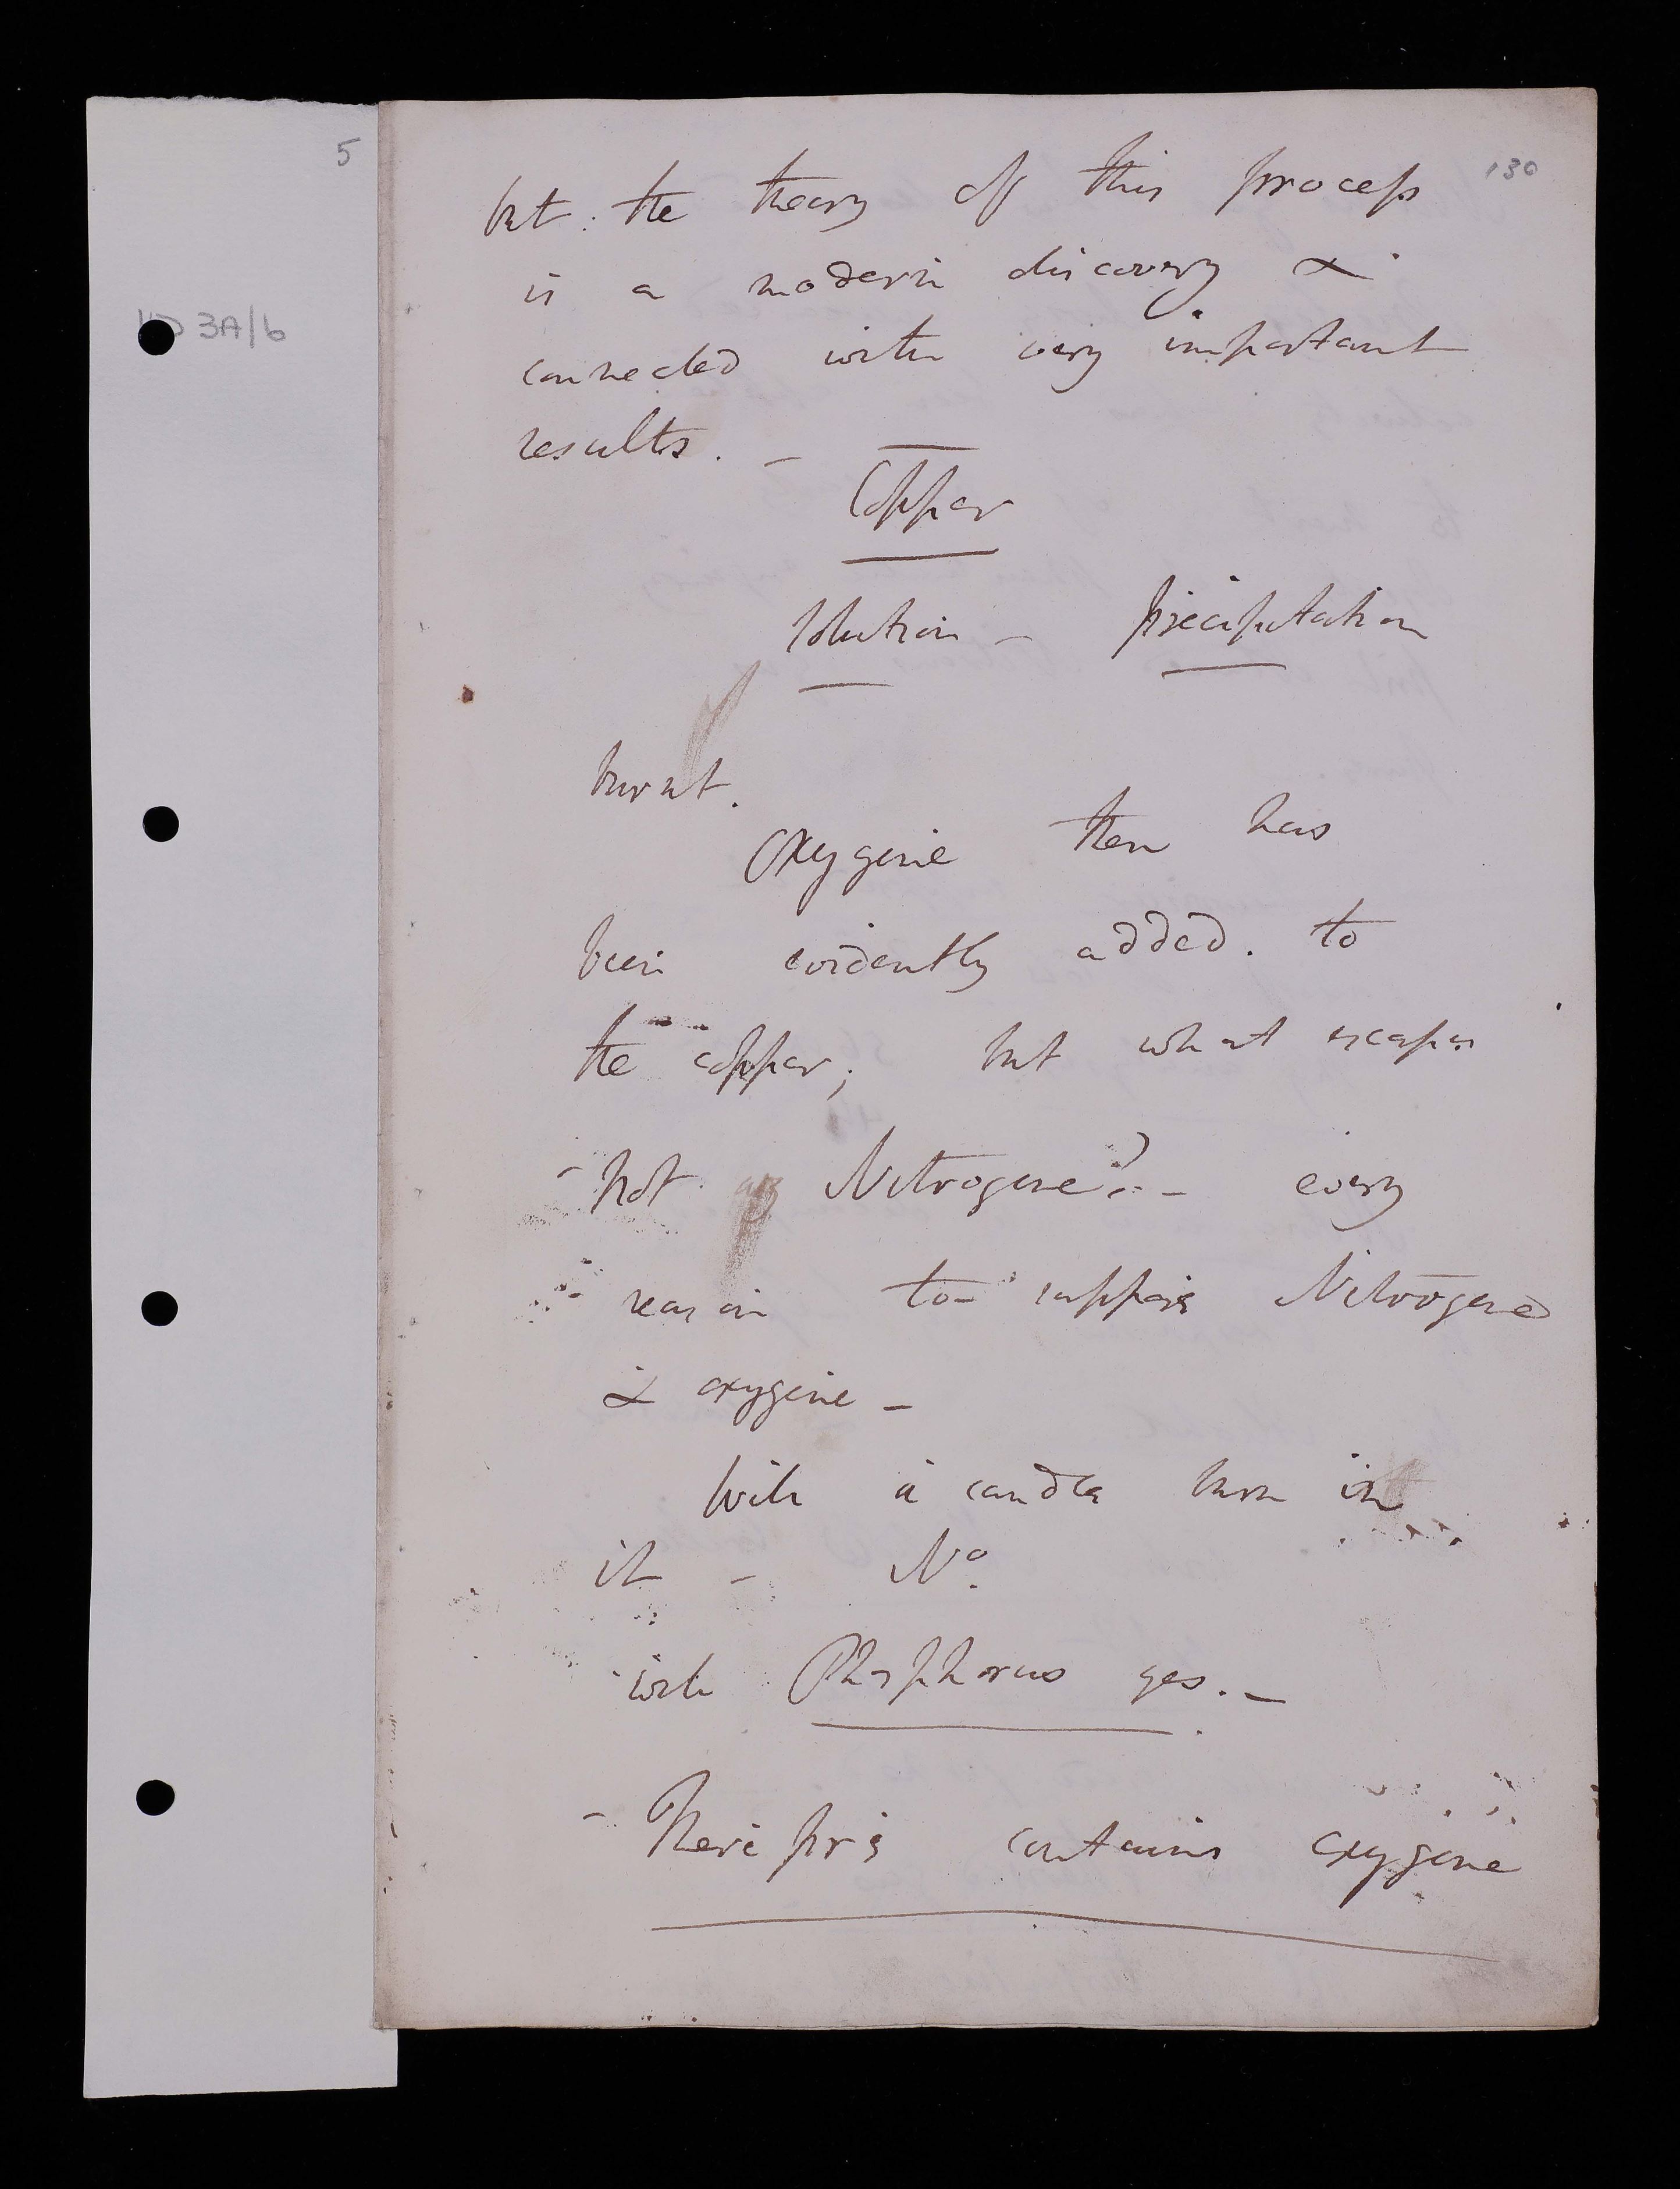 5
130
HD 3A/6
but the theory of this process
is a modern discovery &
connected with very important
results. –
Copper
Solution – precipitation
burnt.
Oxygene then has
been evidently added to
the copper; but what escapes
– not Nitrogene? – every
reason to suppose Nitrogene
& oxygene –
Will a candle burn in
it – No.
will Phosphorus yes. –
– Therefore contains oxygene